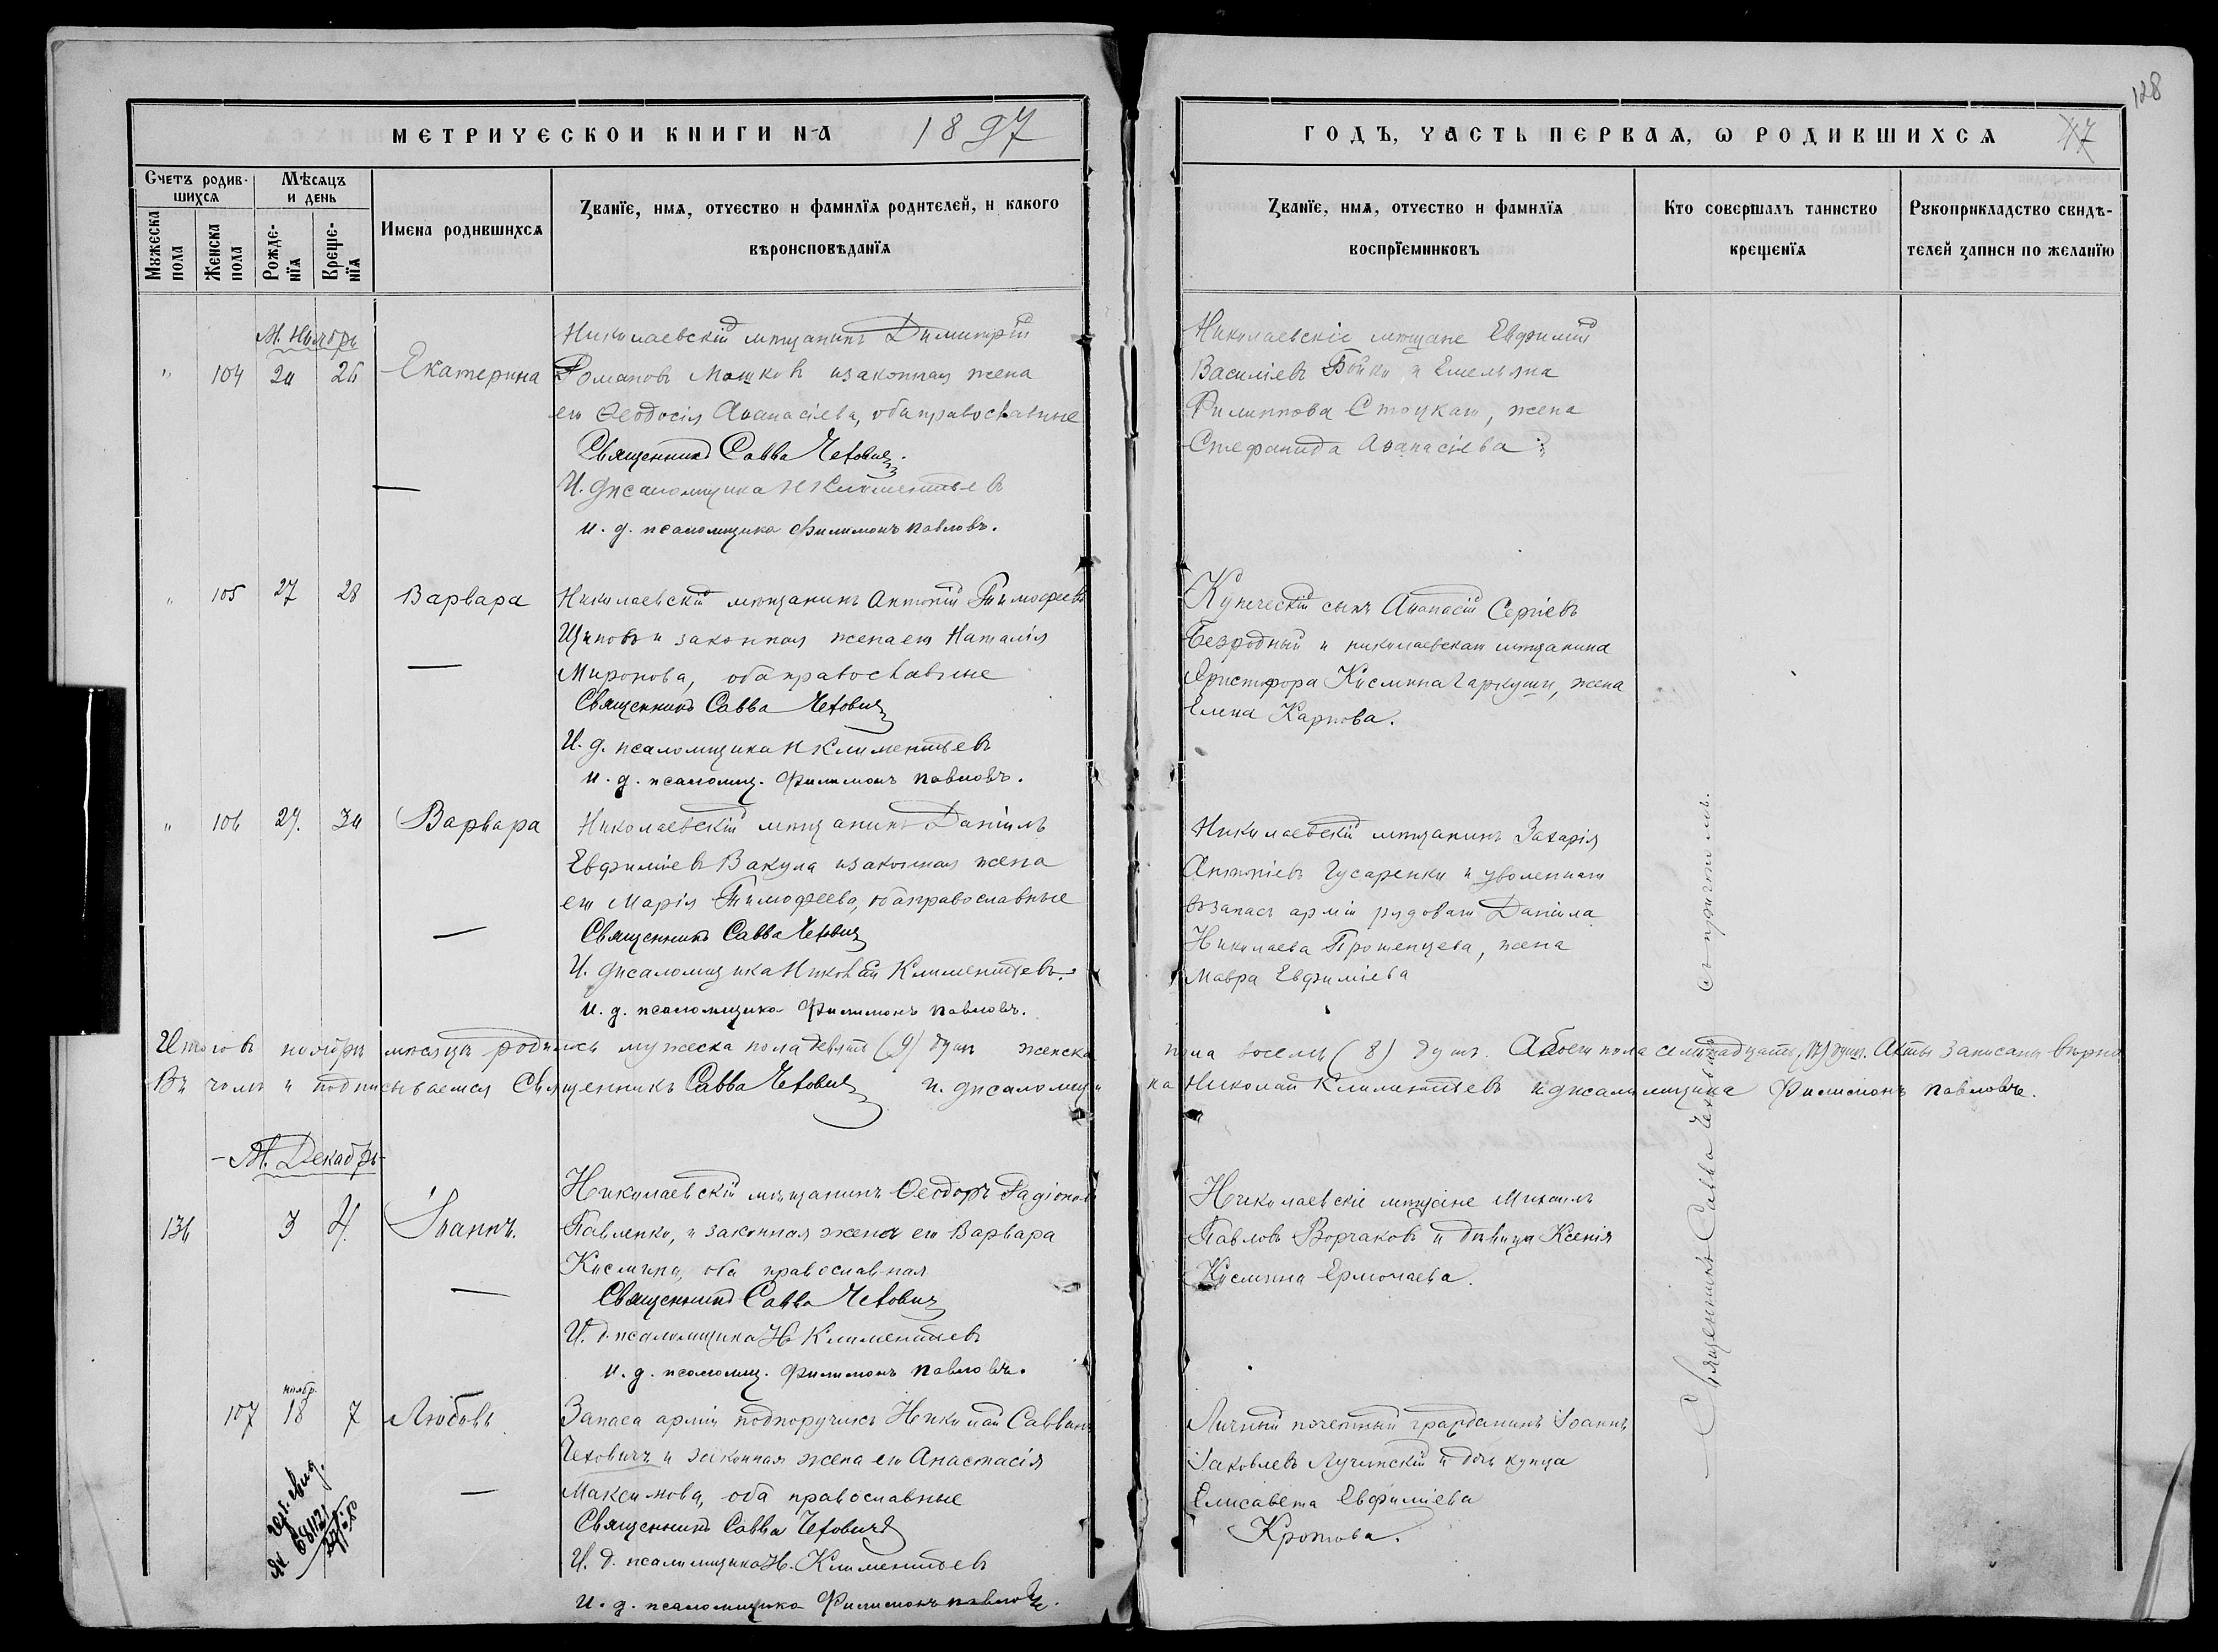 128
МЕТРИЧЕСКОЙ КНИГИ НА 1897
ГОДЪ, ЧАСТЬ ПЕРВАЯ, Ѡ РОДИВШИХСЯ 47
Счетъ родив-
шихся
Мѣсяцъ
и день
Мужеска
пола
Женска
пола
Рожде-
нїя
Креще-
нїя
Имена родившихся
Званїе, имя, отчество и фамилїя родителей, и какого
вѣроисповѣданїя
Званїе, имя, отчество и фамилїя
воспрїемниковъ
Кто совершалъ таинство
крещенїя
Рукоприкладство свидѣ-
телей записи по желанїю
М. Ноябрь
" 104 24 26 Екатерина
Николаевскій мѣщанинъ Димитрій
Романовъ Машковъ и законная жена
его Ѳеодосія Аѳанасіева, оба православные
Священникъ Савва Чехович
И. д псаломщика Н Климентьевъ
и. д. псаломщика Филимонъ Павловъ.
Николаевскіе мѣщане Евфимій
Василіевъ Бойко и Емельяна
Филиппова Стоцкаго, жена
Стефанида Аѳанасіева
" 105 27 28 Варвара
Николаевскій мѣщанинъ Антоній Тимофеевъ
Щиповъ и законная жена его Наталія
Миронова, оба православные
Священникъ Савва Чехович
И. д. псаломщика Н Климентьевъ
и. д. псаломщ. Филимонъ Павловъ.
Купеческій сынъ Аѳанасій Сергіевъ
Безродный и николаевскаго мѣщанина
Христофора Космина Гаркуши, жена
Елена Карпова.
" 106 27. 30 Варвара
Николаевскій мѣщанинъ Даніилъ
Евфиміевъ Вакула и законная жена
его Марія Тимофеева, оба православные
Священникъ Савва Чехович
И. д псаломщика Николай Климентьевъ.
и. д. псаломщика Филимонъ Павловъ.
Николаевскій мѣщанинъ Захарія
Антоніевъ Гусаренко и уволеннаго
въ запасъ арміи рядоваго Даніила
Николаева Прошенцева, жена
Мавра Евфиміева
Итого въ ноябрѣ мѣсяцѣ родилось мужеска пола девять (9) душъ женска пола восемь (8) душъ. А обоего пола семнадцать (17) душъ. Акты записаны вѣрно
Въ чемъ и подписываемся Священникъ Савва Чехович и. д псаломщика Николай Климентьевъ и. д псаломщика Филимонъ Павловъ.
М. Декабрь
136 3 4. Іоаннъ.
Николаевскій мѣщанинъ Ѳеодоръ Радіоновъ
Павленко, и законная жена его Варвара
Космина, оба православная
Священникъ Савва Чехович
И. д. псаломщика Н Климентьевъ
и. д. псаломщ. Филимонъ Павловъ.
Николаевскіе мѣщане Михаилъ
Павловъ Ворчаковъ и дѣвица Ксенія
Космина Ермолаева.
107 ноябр. 18 7 Любовь
Запаса арміи подпоручикъ Николай Саввинъ
Чеховичъ и законная жена его Анастасія
Максимова, оба православные
Священникъ Савва Чехович
И. д. псаломщика Н. Климентьевъ
и. д. псаломщика Филимонъ Павловъ.
Личный почетный гражданинъ Іоаннъ
Іаковлевъ Лучинскій и дочь купца
Елисавета Евфиміева
Кротова.
Священникъ Савва Чеховичъ съ причтомъ.